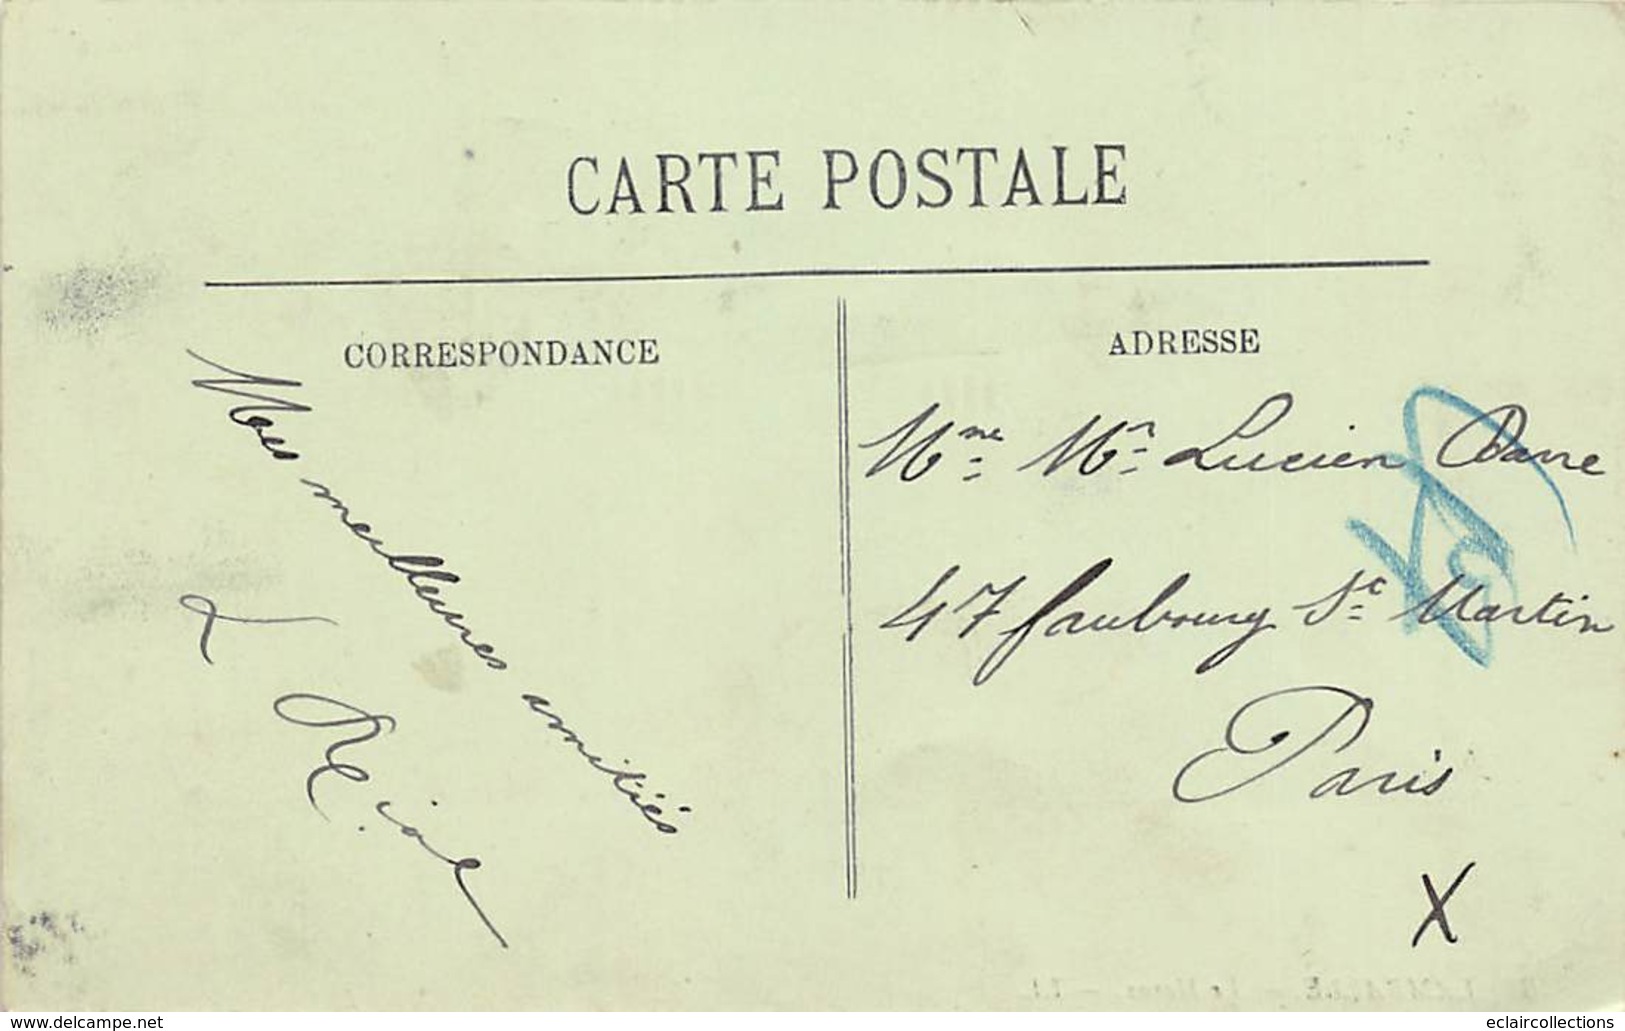 CARTE POSTALE
CORRESPONDANCE
Mes meilleures amitiés
L
ADRESSE
Mme Mr Lucien
47 faubourg St Martin
Paris
X
eclaircollections